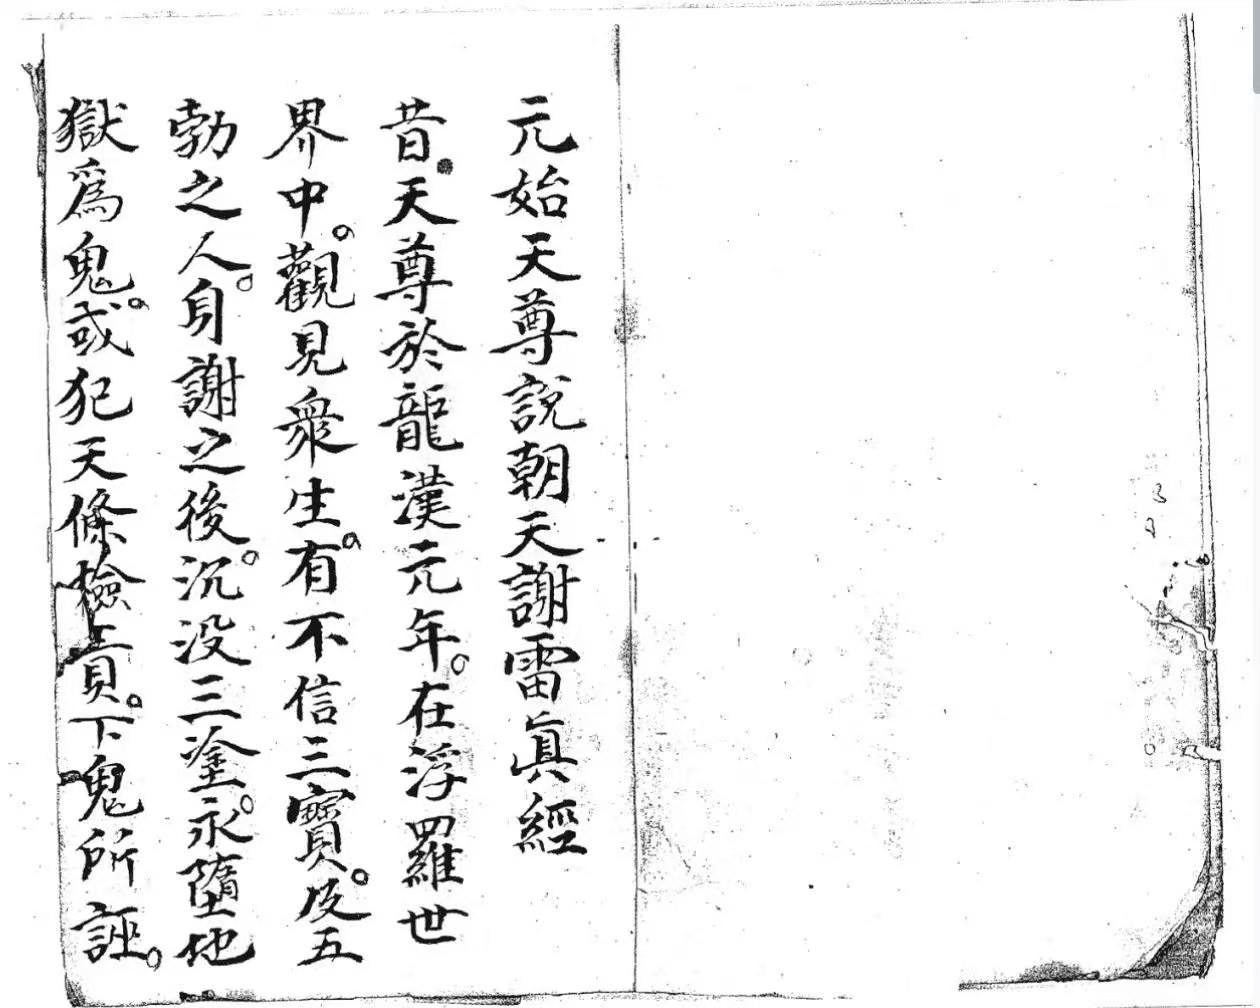 元始天尊說朝天謝雷眞經
昔天尊於龍漢元年。在浮羅世
界中。觀見衆生。有不信三寶。及五
勃之人。身謝之後。沉没三塗。永墮地
獄爲鬼。或犯天條檢責。下鬼所誣。